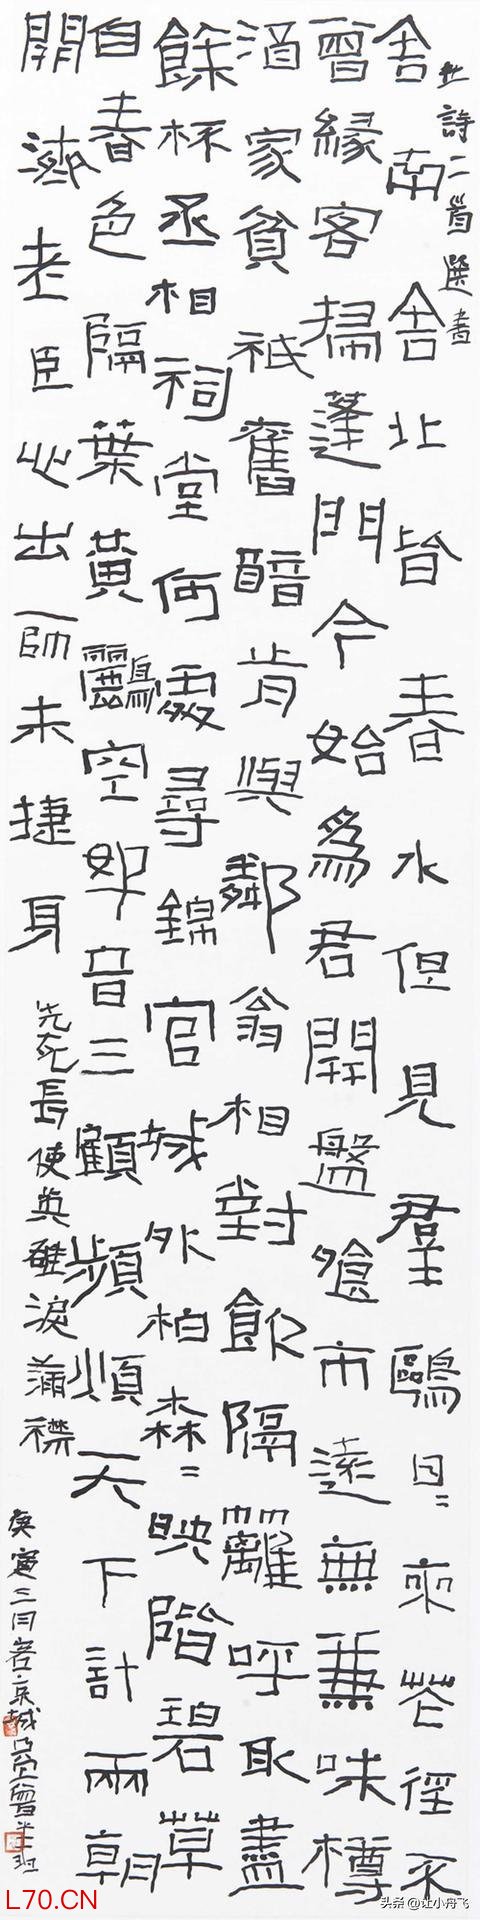 杜詩二首選書
舍南舍北皆春水但見羣鷗日〻來花徑不
曾緣客掃蓬門今始爲君開盤飧市遠無兼味樽
酒家貧祇舊醅肯與鄰翁相對飲隔籬呼取盡
餘杯丞相祠堂何處尋錦官城外柏森〻映階碧草
自春色隔葉黃鸝空好音三顧頻煩天下計兩朝
開濟老臣心出師未捷身
先死長使英雄淚滿襟
庚寅三月客京城
L70.CN
头条 @让小丹飞